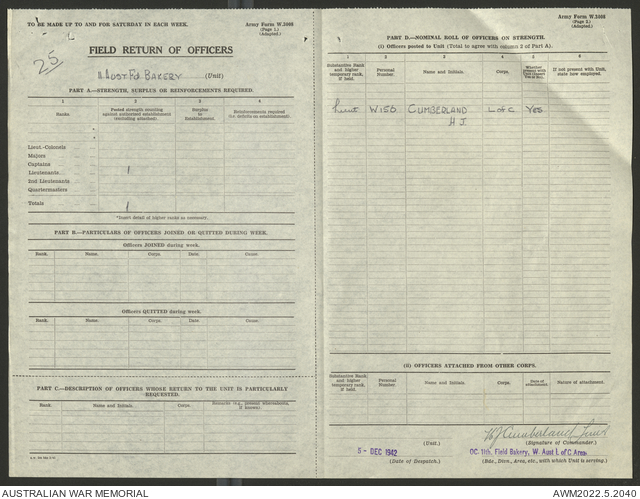 TO BE MADE UP TO AND FOR SATURDAY IN EACH WEEK.
Army Form W.3008
(Page 1.)
(Adapted.)
25
FIELD RETURN OF OFFICERS
11 AUST. FD. BAKERY (Unit)
PART A.—STRENGTH, SURPLUS OR REINFORCEMENTS REQUIRED.
1 2 3 4
Ranks. Posted strength counting against authorised establishment (excluding attached). Surplus to Establishment. Reinforcements required (i.e. deficits on establishment).
Lieut.-Colonels
Majors
Captains
Lieutenants 1
2nd Lieutenants
Quartermasters
Totals 1
*Insert detail of higher ranks as necessary.
PART B.—PARTICULARS OF OFFICERS JOINED OR QUITTED DURING WEEK.
Officers JOINED during week.
Rank. Name. Corps. Date. Cause.
Officers QUITTED during week.
Rank. Name. Corps. Date. Cause.
PART C.—DESCRIPTION OF OFFICERS WHOSE RETURN TO THE UNIT IS PARTICULARLY REQUESTED.
Rank. Name and Initials. Corps. Remarks (e.g., present whereabouts, if known).
Army Form W.3008
(Page 2.)
(Adapted.)
PART D.—NOMINAL ROLL OF OFFICERS ON STRENGTH.
(i) Officers posted to Unit (Total to agree with column 2 of Part A).
1 2 3 4 5 6
Substantive Rank and higher temporary rank, if held. Personal Number. Name and Initials. Corps. Whether present with Unit (insert Yes or No). If not present with Unit, state how employed.
Lieut W150 CUMBERLAND L of C YES
H J
(ii) OFFICERS ATTACHED FROM OTHER CORPS.
Substantive Rank and higher temporary rank, if held. Personal Number. Name and Initials. Corps. Date of attachment. Nature of attachment.
HJCumberland Lieut
(Unit.) (Signature of Commander.)
5- DEC 1942 OC. 11th, Field Bakery, W. Aust L of C Area
(Date of Despatch.) (Bde., Divn., Area, etc., with which Unit is serving.)
AUSTRALIAN WAR MEMORIAL AWM2022.5.2040